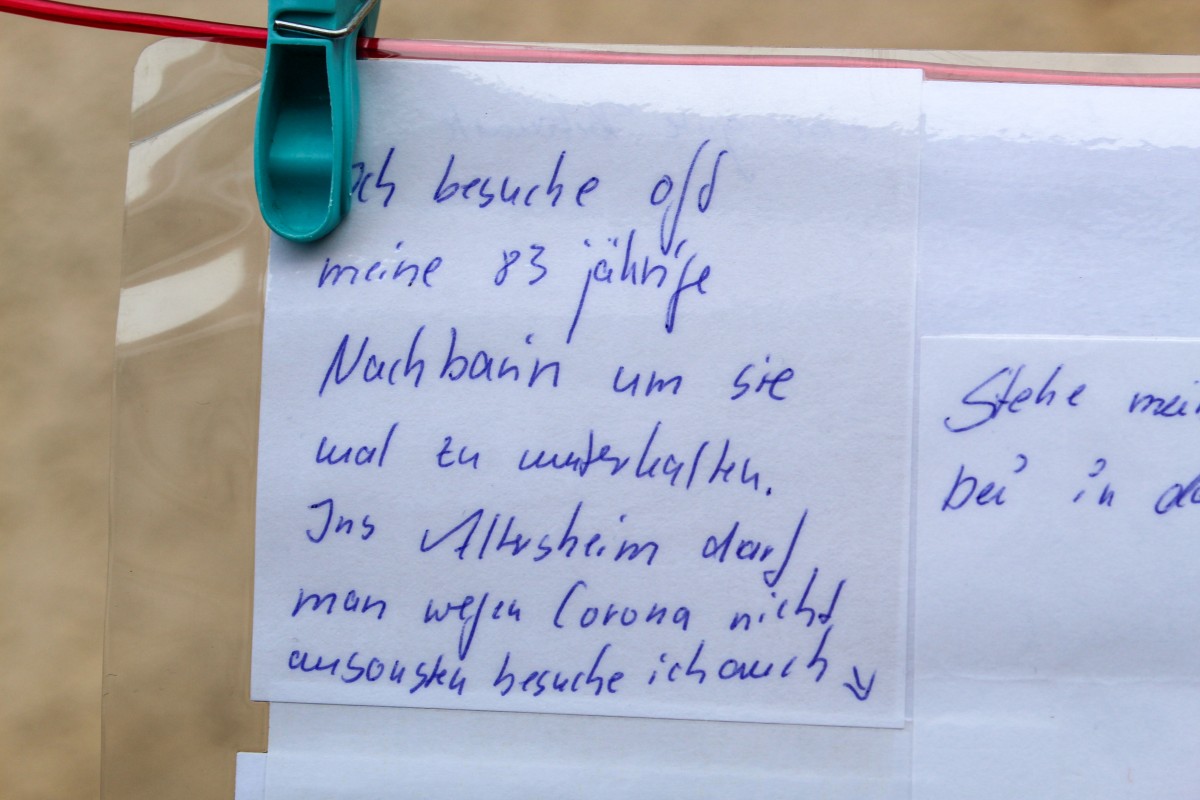 Ich besuche oft
meine 83 jährige
Nachbarin um sie
mal zu unterhalten.
Ins Altersheim darf
man wegen Corona nicht
ansonsten besuche ich auch
Stehe mei
bei in d